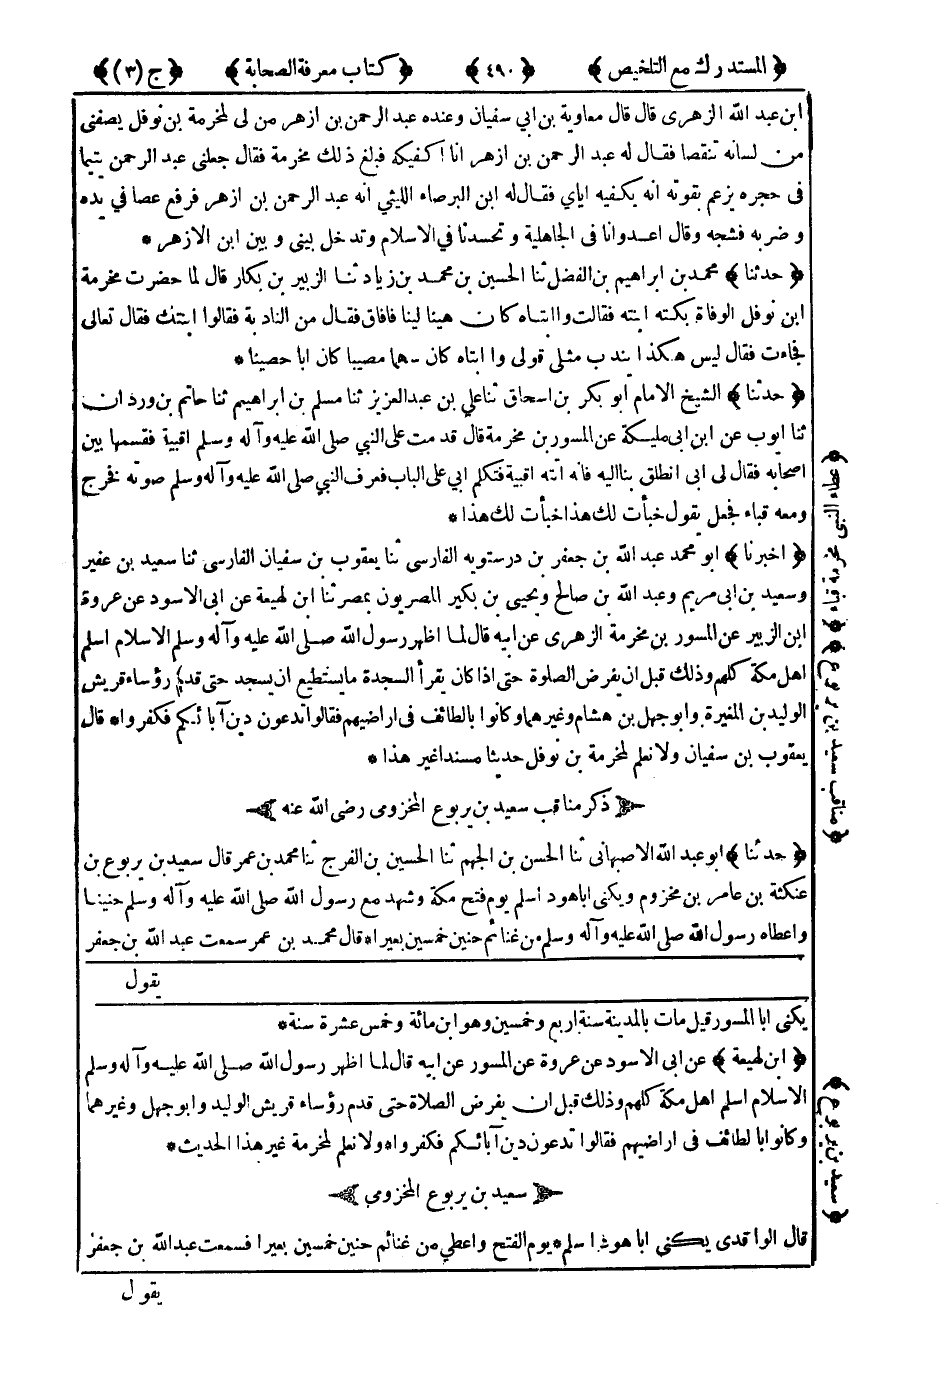 ﴿ المستدرك مع التلخيص ﴾ ﴿ ٤٩٠ ﴾ ﴿ كتاب معرفة الصحابة ﴾ ﴿ ج (٣) ﴾
ابن عبد الله الزهرى قال قال معاوية بن ابي سفيان وعنده عبد الرحمن بن ازهر من لى لمخرمة بن نوفل يصفنى
من لسانه تنقصا فقال له عبد الرحمن بن ازهر انا اكفيكه فبلغ ذلك مخرمة فقال جعلنى عبد الرحمن يتيما
فى حجره يزعم بقوته انه يكفيه اياي فقال له ابن البرصاء الليثي انه عبد الرحمن بن ازهر فرفع عصا في يده
وضربه فشجه وقال اعدوانا فى الجاهلية وتحسدنا في الاسلام وتدخل بينى و بين ابن الازهر *
﴿ حدثنا ﴾ محمد بن ابراهيم بن الفضل ثنا الحسين بن محمد بن زياد ثنا الزبير بن بكار قال لما حضرت مخرمة
ابن نوفل الوفاة بكته ابنته فقالت وا ابتاه كان هينا لينا فافاق فقال من النادبة فقالوا ابنتك فقال تعالى
فجاءت فقال ليس هكذا يندب مثلى قولى وا ابتاه كان سهما مصيبا كان ابا حصينا *
﴿ حدثنا ﴾ الشيخ الامام ابو بكر بن اسحاق ثنا على بن عبد العزيز ثنا مسلم بن ابراهيم ثنا حاتم بن وردان
ثنا ايوب عن ابن ابى مليكة عن المسور بن مخرمة قال قدمت على النبي صلى الله عليه وآله وسلم اقبية فقسمها بين
اصحابه فقال لى ابى انطلق بنا اليه فانه اتته اقبية فتكلم ابي على الباب فعرف النبي صلى الله عليه وآله وسلم صوته فخرج
ومعه قباء فجعل يقول خبأت لك هذا خبأت لك هذا *
﴿ اخبرنا ﴾ ابو محمد عبد الله بن جعفر بن درستويه الفارسي ثنا يعقوب بن سفيان الفارسي ثنا سعيد بن عفير
وسعيد بن ابى مريم وعبد الله بن صالح ويحيى بن بكير المصريون بمصر ثنا ابن لهيعة عن ابى الاسود عن عروة
ابن الزبير عن المسور بن مخرمة الزهرى عن ابيه قال لما اظهر رسول الله صلى الله عليه وآله وسلم الاسلام اسلم
اهل مكة كلهم وذلك قبل ان يفرض الصلوة حتى اذا كان يقرأ السجدة ما يستطيع ان يسجد حتى قدم رؤساء قريش
الوليد بن المغيرة وابو جهل بن هشام وغيرهما وكانوا بالطائف فى اراضيهم فقالوا تدعون دين آبائكم فكفروا * قال
يعقوب بن سفيان ولا نعلم لمخرمة بن نوفل حديثا مسندا غير هذا *
ذكر مناقب سعيد بن يربوع المخزومى رضى الله عنه
﴿ حدثنا ﴾ ابو عبد الله الاصبهانى ثنا الحسن بن الجهم ثنا الحسين بن الفرج ثنا محمد بن عمر قال سعيد بن يربوع بن
عنكثة بن عامر بن مخزوم ويكنى اباهود اسلم يوم فتح مكة وشهد مع رسول الله صلى الله عليه وآله وسلم حنينا
واعطاه رسول الله صلى الله عليه وآله وسلم من غنائم حنين خمسين بعيرا * قال محمد بن عمر سمعت عبد الله بن جعفر
يقول
يكنى ابا المسور قيل مات بالمدينة سنة اربع وخمسين وهو ابن مائة وخمس عشرة سنة *
﴿ ابن لهيعة ﴾ عن ابى الاسود عن عروة عن المسور عن ابيه قال لما اظهر رسول الله صلى الله عليه وآله وسلم
الاسلام اسلم اهل مكة كلهم وذلك قبل ان يفرض الصلاة حتى قدم رؤساء قريش الوليد وابو جهل وغيرهما
وكانوا بالطائف فى اراضيهم فقالوا تدعون دين آبائكم فكفروا * ولا نعلم لمخرمة غير هذا الحديث *
سعيد بن يربوع المخزومي
قال الواقدى يكنى ابا هود اسلم يوم الفتح واعطي من غنائم حنين خمسين بعيرا فسمعت عبد الله بن جعفر
يقول
﴿ مناقب سعيد بن يربوع ﴾
﴿ سعيد بن يربوع ﴾